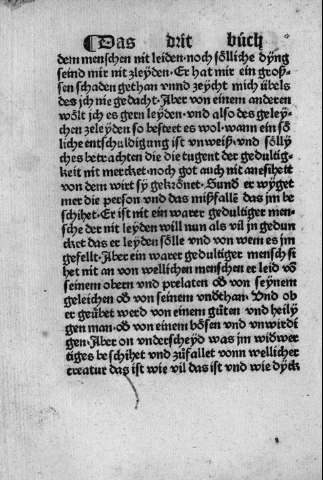 ¶Das drit bůch
dem menschen nit leiden·noch sölliche dyng
seind mir nit zleyden·Er hat mir ein groß-
sen schaden gethan vnnd zeycht mich übels
des jch nie gedacht·Aber von einem anderen
wölt jch es gern leyden·vnd also des geley-
chen zeleyden so besteet es wol·wann ein sö
liche entschuldigung ist vnweiß·vnd sölly
ches betrachten die die tugent der gedultig-
keit nit mercket·noch got auch nit ansiheẗt
von dem wirt sy gekrönet·Sund er wyget
mer die person vnd das mißfallē das jm be
schihet·Er ist nit ein warer gedultiger men-
sche der nit leyden will nun als vil jn gedun
cket das er leyden sölle vnd von wem es jm
gefellt·Aber ein warer gedultiger mensch si
het nit an von wellichen menschen er leid vö
seinem obern vnd prelaten ob von seynem
geleichen ob von seinem vndthan·Vnd ob
er geübet werd von einem gůten vnd heily
gen man·ob von einem bösen vnd vnwirdi
gen·Aber on vnderscheyd was jm widwer
tiges beschihet vnd zůfallet vonn wellicher
creatur das ist wie vil das ist vnd wie dyck